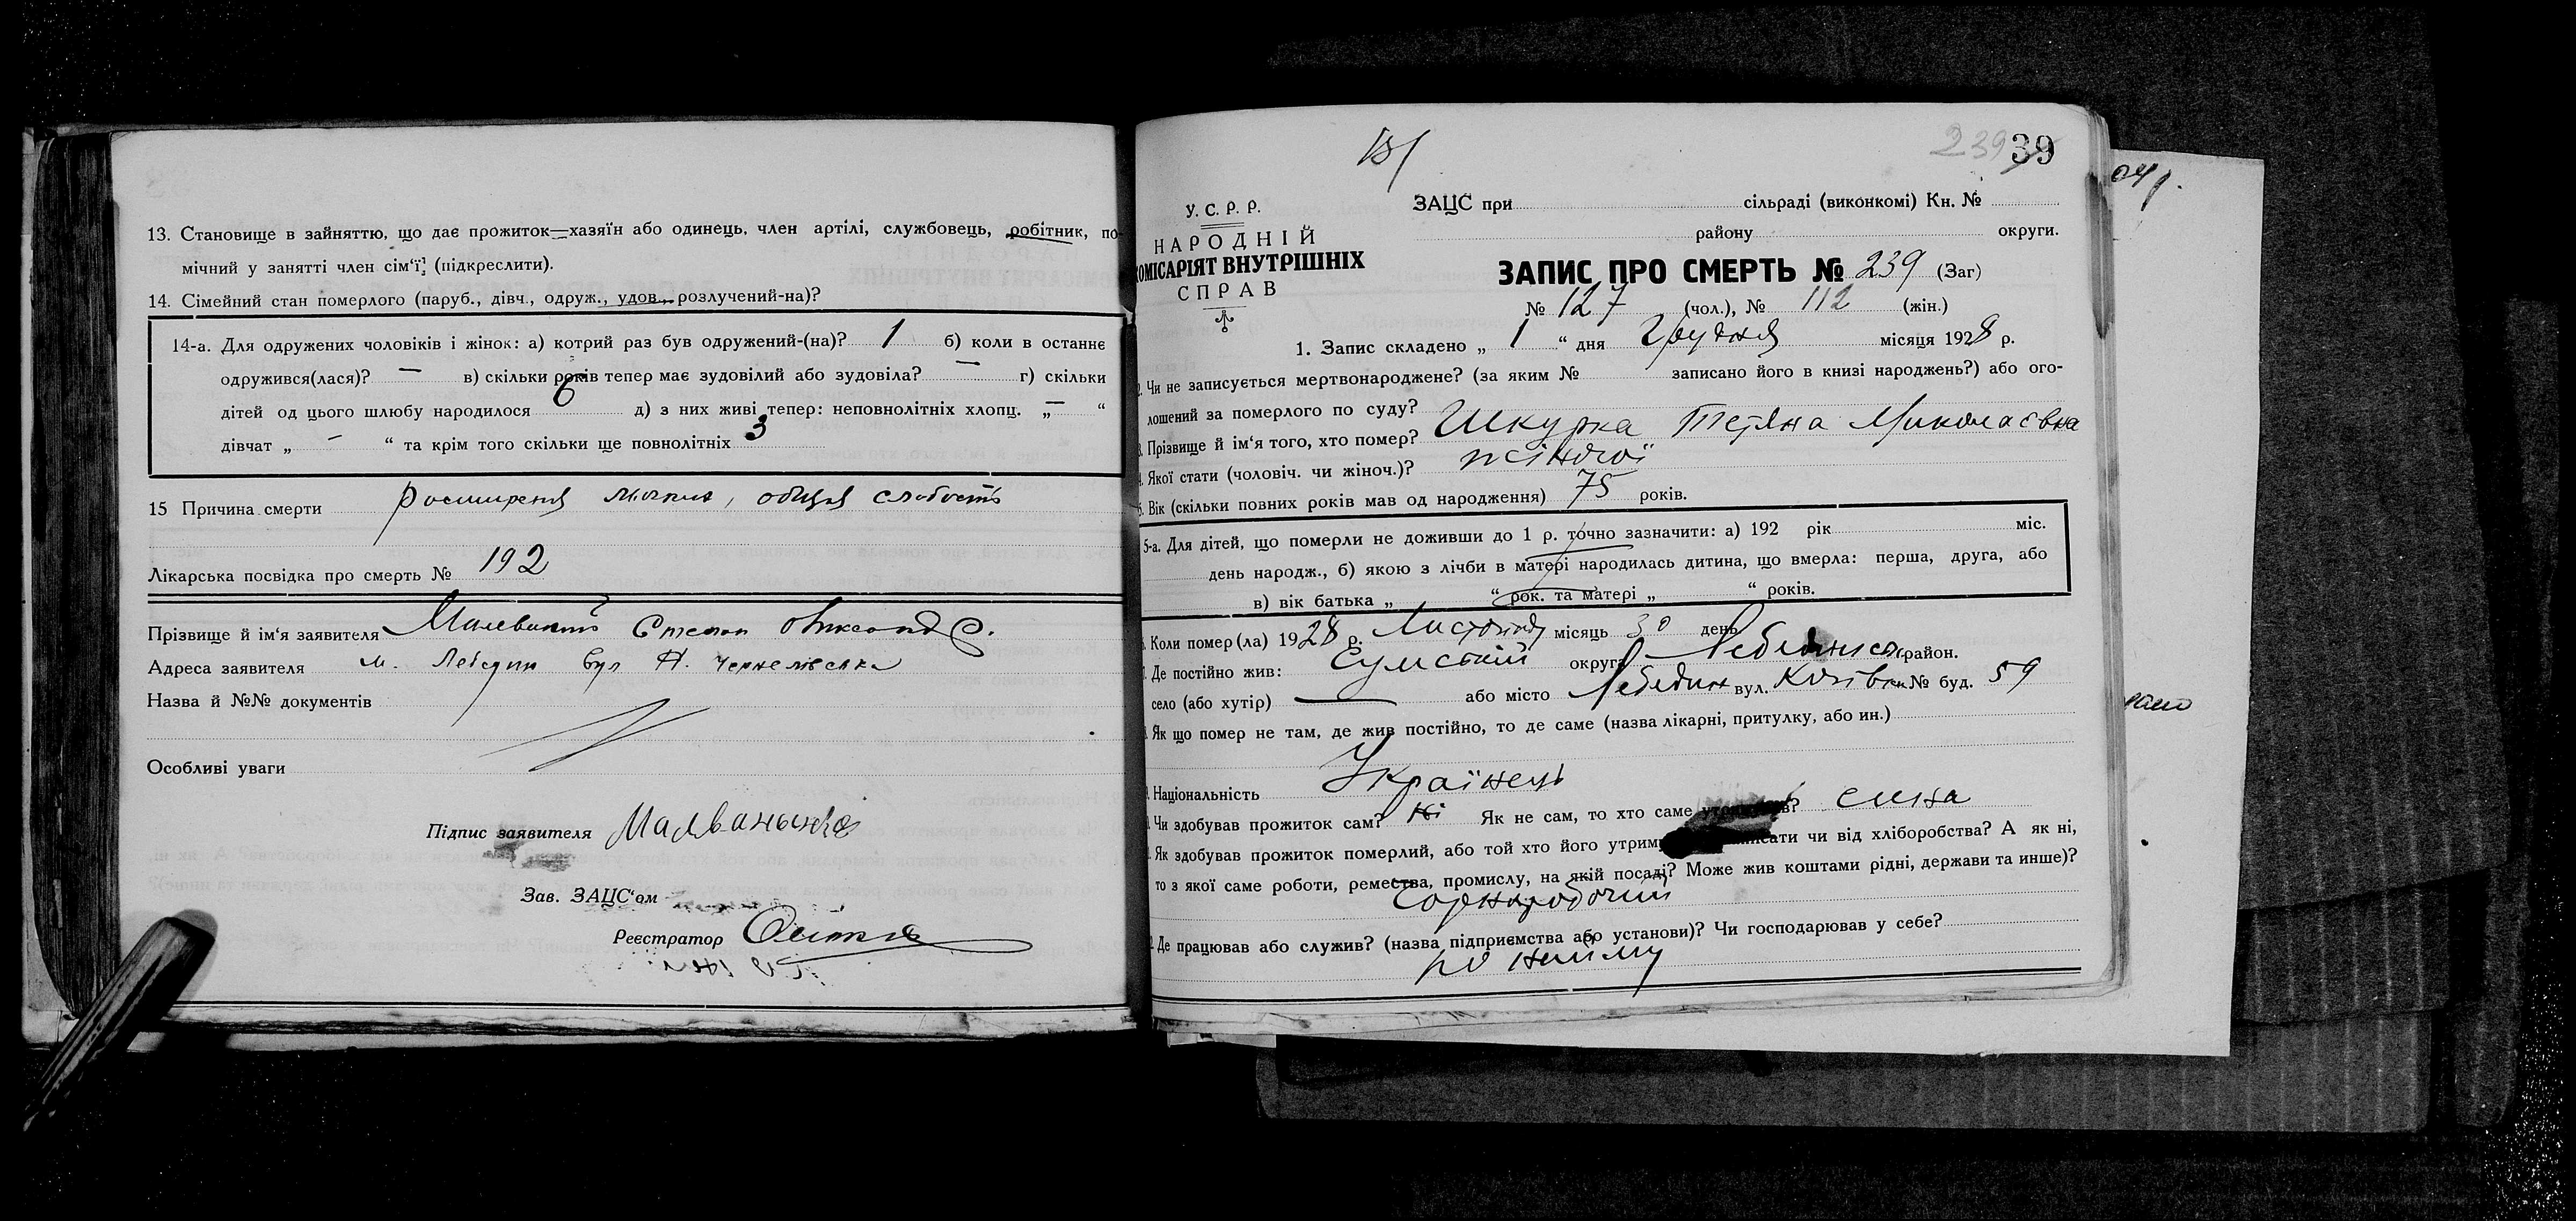 13. Становище в зайняттю, що дає прожиток—хазяїн або одинець, член артілі, службовець, робітник, по-
мічний у занятті член сім‘ї (підкреслити).
14. Сімейний стан померлого (паруб., дівч., одруж., удов., розлучений-на)?
14-а. Для одружених чоловіків і жінок: а) котрий раз був одружений-(на)? 1 б) коли в останнє
одружився(лася)? — в) скільки років тепер має зудовілий або зудовіла? — г) скільки
дітей од цього шлюбу народилося 6 д) з них живі тепер: неповнолітніх хлопц. „ — “
дівчат „ — “ та крім того скільки ще повнолітніх 3
15 Причина смерти общая слабость
Лікарська посвідка про смерть № 192
Прізвище й ім‘я заявителя Степан
Адреса заявителя м. Лебедин вул
Назва й №№ документів
Особливі уваги
Підпис заявителя
Зав. ЗАЦС‘ом
Реєстратор
239 39
У. С. Р. Р.
НАРОДНІЙ
КОМІСАРІЯТ ВНУТРІШНІХ
СПРАВ
ЗАЦС при сільраді (виконкомі) Кн. №
району округи.
ЗАПИС ПРО СМЕРТЬ № 239 (Заг)
№ 127 (чол.), № 112 (жін.)
1. Запис складено „ 1 “ дня Грудня місяця 1928 р.
2. Чи не записується мертвонароджене? (за яким № записано його в книзі народжень?) або ого-
лошений за померлого по суду?
3. Прізвище й ім‘я того, хто помер? Шкурка Тетяна Миколаєвна
4. Якої стати (чоловіч. чи жіноч.)? жіночої
5. Вік (скільки повних років мав од народження) 75 років.
5-а. Для дітей, що померли не доживши до 1 р. точно зазначити: а) 192 рік міс.
день народж., б) якою з лічби в матері народилась дитина, що вмерла: перша, друга, або
в) вік батька „ “ рок. та матері „ “ років.
Коли помер(ла) 1928 р. Листопад місяць 30 день
Де постійно жив: Сумській округа Лебединськ. район.
село (або хутір) — або місто Лебедин вул. № буд. 59
Як що помер не там, де жив постійно, то де саме (назва лікарні, притулку, або ин.)
Національність Українець
Чи здобував прожиток сам? Ні Як не сам, то хто саме сина
Як здобував прожиток померлий, або той хто його утрим чи від хліборобства? А як ні,
то з якої саме роботи, ремества, промислу, на якій посаді? Може жив коштами рідні, держави та инше)?
Чорноробочий
Де працював або служив? (назва підприємства або установи)? Чи господарював у себе?
по найму